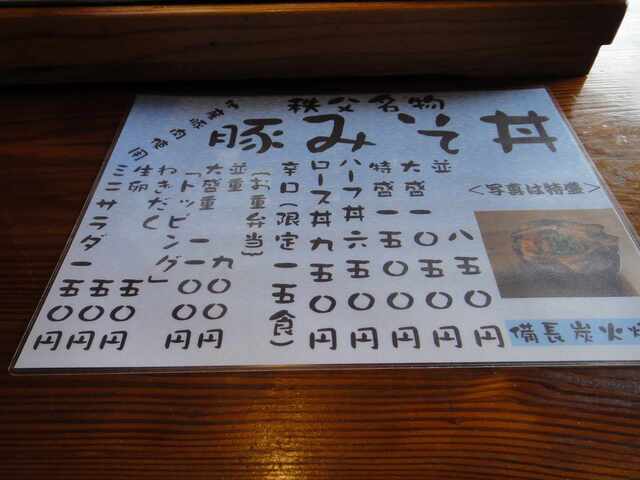 秩父名物
豚みそ丼
豚肉使用
<写真は特盛>
備長炭火焼
並 八五〇円
大盛 一〇五〇円
特盛 一五〇〇円
ハーフ丼 六五〇円
ロース丼 九五〇円
辛口(限定一五食)
{お重弁当}
並重 九〇〇円
大盛重 一一〇〇円
「トッピング」
ねぎだく 五〇円
生卵 五〇円
ミニサラダ 一五〇円